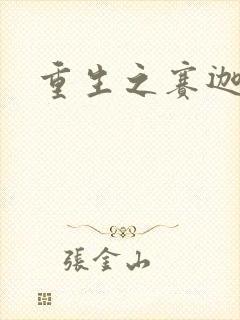 重生之赛迦
張金山